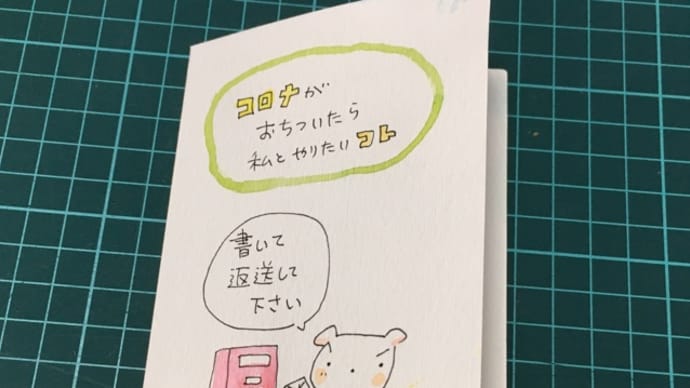 コロナが
おちついたら
私とやりたいコト
書いて
返送して
下さい